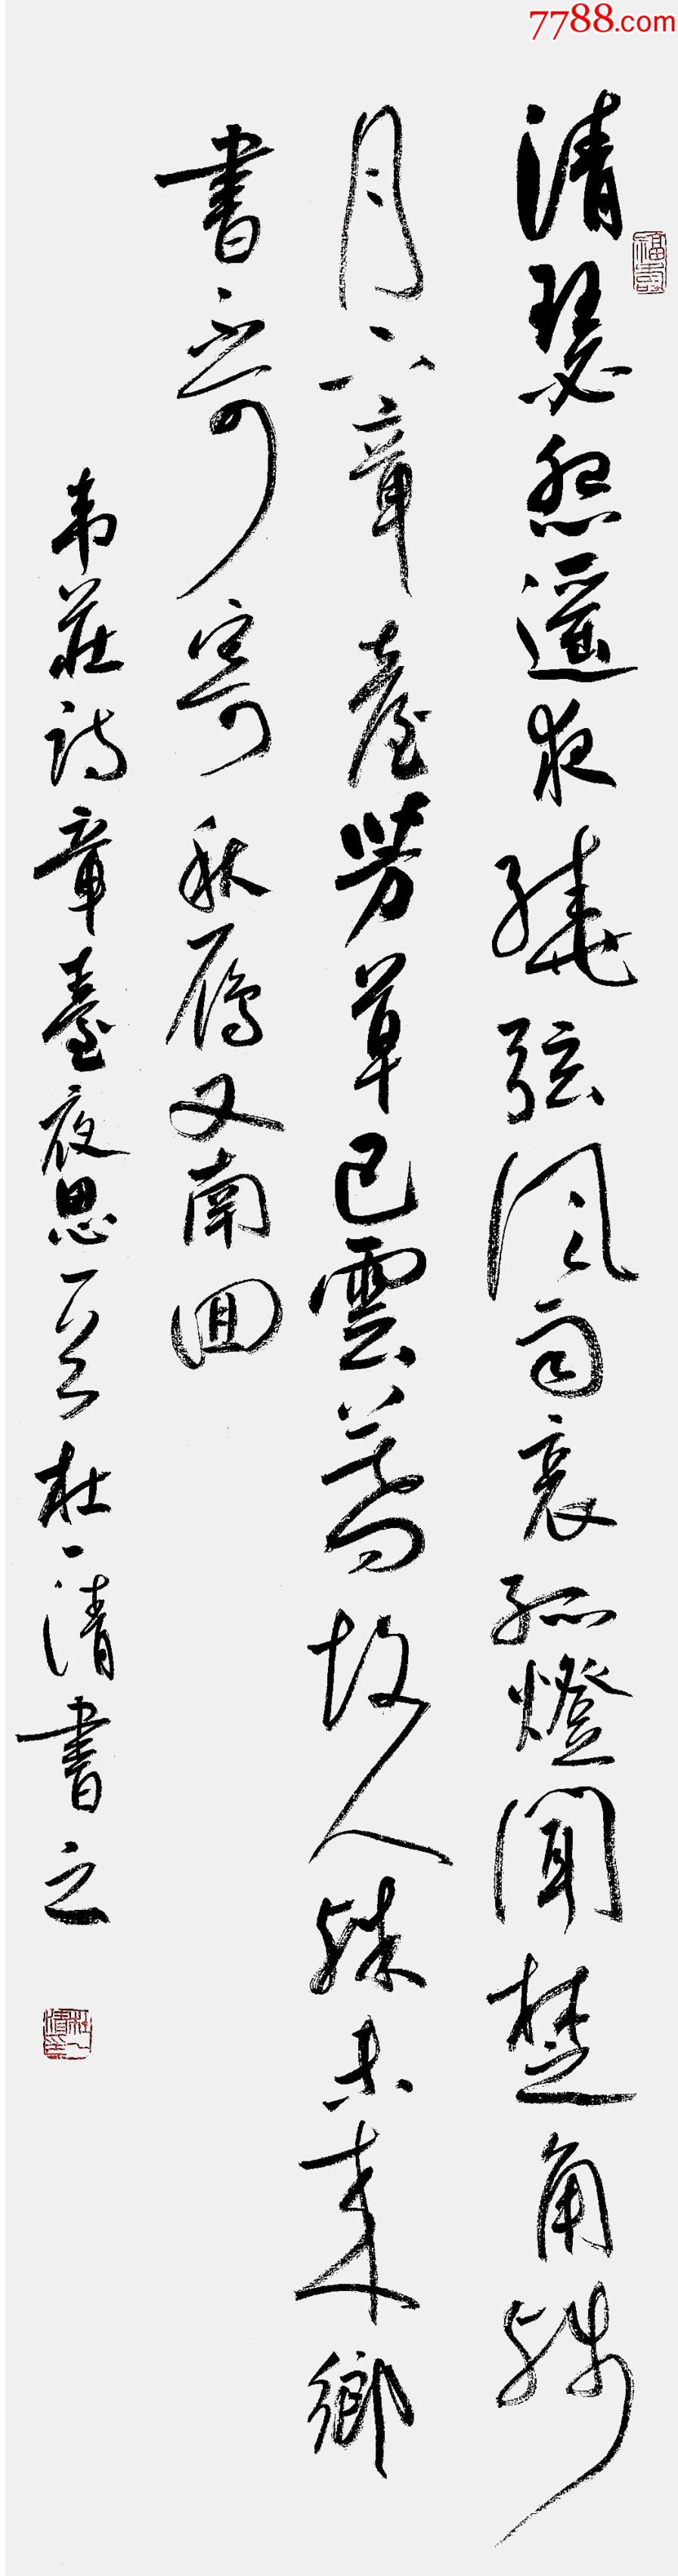 7788.com
清瑟怨遥夜繞弦风雨哀孤燈聞楚角残
月下章臺芳草已雲暮故人殊未来鄉
書不可寄秋雁又南回
韦莊詩章臺夜思一首杜一清書之
福壽